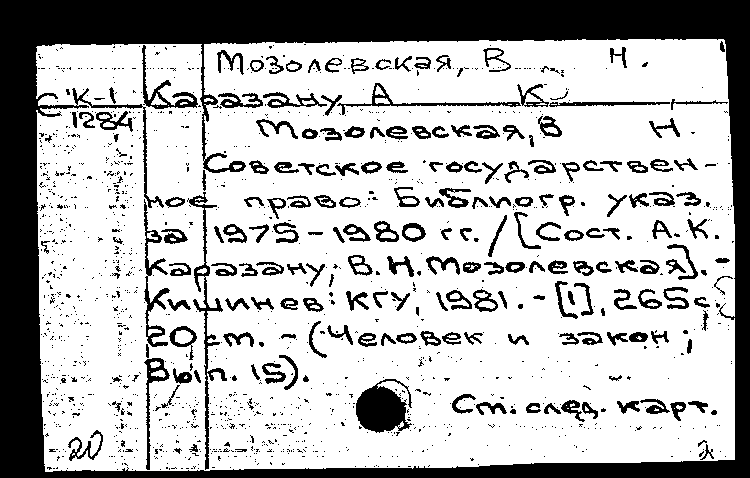 Мозолевская, В Н.
С К-1 Каразану, А К
1284
Мозолевская, В Н.
Советское государствен-
ное право: Библиогр. указ.
за 1975-1980 гг. / [Сост. А.К.
Каразану, В.Н. Мозолевская]. -
Кишинев: КГУ, 1981. - [1], 265 с.
20 см. - (Человек и закон;
Вып. 15).
См. след. карт.
20 2